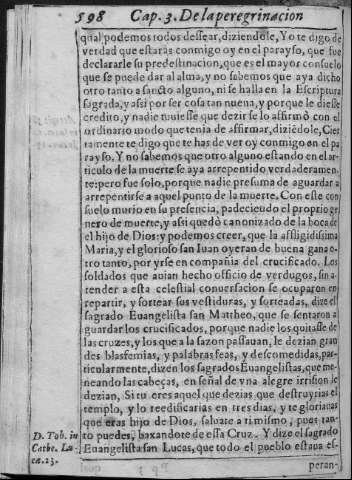 598 Cap. 3. De la peregrinacion
qual podemos todos dessear, diziendole, Yo te digo de
verdad que estaras conmigo oy en el parayso, que fue
declararle su predestinacion, que es el mayor consuelo
que se puede dar al alma, y no sabemos que aya dicho
otro tanto a sancto alguno, ni se halla en la Escriptura
sagrada, y assi por ser cosa tan nueva, y porque le diesse
credito, y nadie tuuiesse que dezir se lo affirmò con el
ordinario modo que tenia de affirmar, diziẽdole, Cier
tamente te digo que te has de ver oy conmigo en el pa
rayso. Y no sabemos que otro alguno estando en el ar-
ticulo de la muerte se aya arrepentido verdaderamen-
te: pero fue solo, porque nadie presuma de aguardar a
arrepentirse a aquel punto de la muerte. Con este con
suelo murio en su presencia, padeciendo el proprio ge
nero de muerte, y assi quedò canonizado de la boca de
el hijo de Dios: y podemos creer, que la affligidissima
Maria, y el glorioso san Iuan oyeran de buena gana o-
tro tanto, por yrse en compañia del crucificado. Los
soldados que auian hecho officio de verdugos, sin a-
tender a esta celestial conuersacion se ocuparon en
repartir, y sortear sus vestiduras, y sorteadas, dize el
sagrado Euangelista san Mattheo, que se sentaron a
guardar los crucificados, porque nadie los quitasse de
las cruzes, y los que a la sazon passauan, le dezian gran
des blasfemias, y palabras feas, y descomedidas, par-
ticularmente, dizen los sagrados Euangelistas, que me-
neando las cabeças, en señal de vna alegre irrision le
dezian, Si tu eres aquel que dezias que destruyrias el
templo, y lo reedificarias en tres dias, y te glorianas
que eras hijo de Dios, saluate a ti mismo, pues tan-
to puedes, baxandote de essa Cruz. Y dize el sagrado
Euangelista san Lucas, que todo el pueblo estaua es-
peran-
D. Tob. in
Cathe. Lu-
cæ. 23.